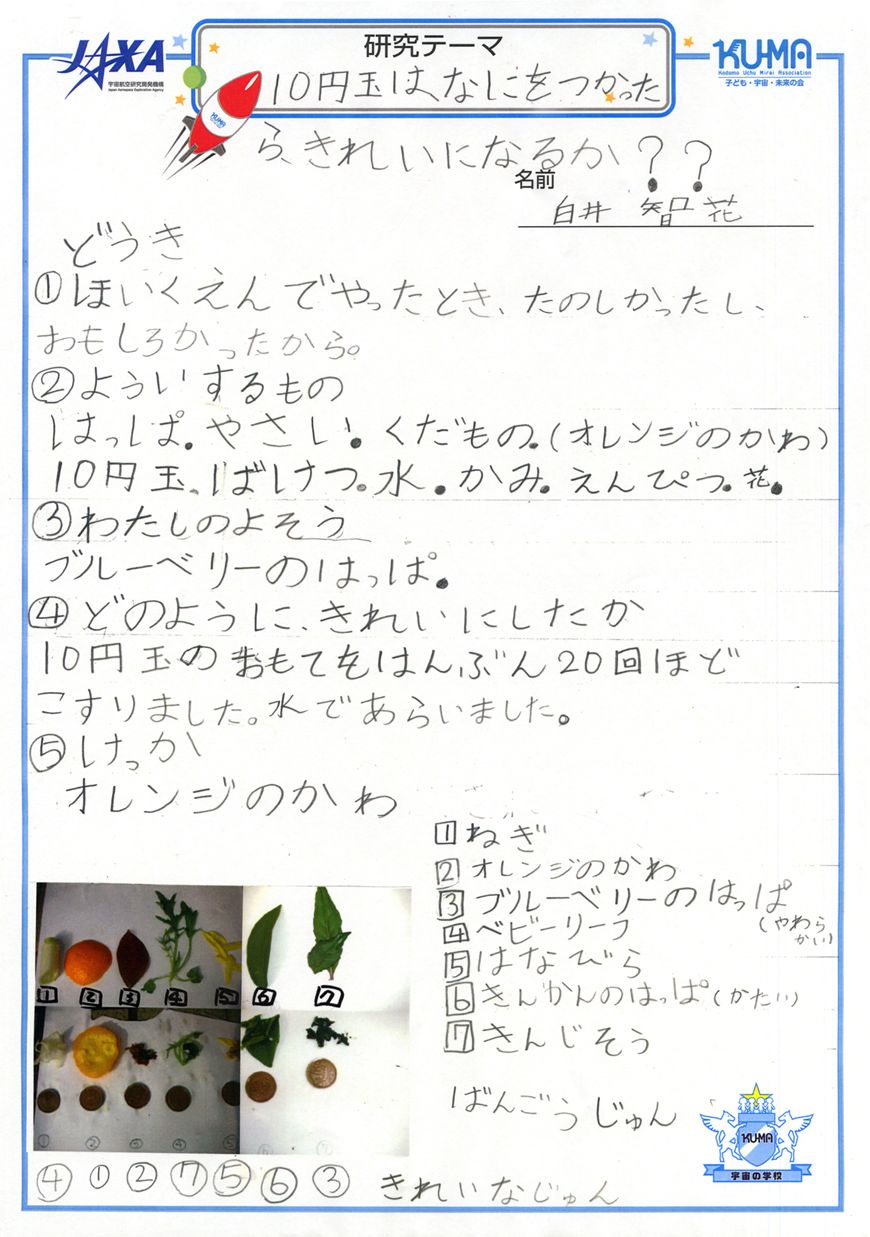 JAXA
宇宙航空研究開発機構
Japan Aerospace Exploration Agency
研究テーマ
KU-MA
Kodomo Uchu Mirai Association
子ども・宇宙・未来の会
10円玉は、なにをつかった
ら、きれいになるか??
KU-MA
名前
白井 智花
どうき
①ほいくえんでやったとき、たのしかったし、
おもしろかったから。
②よういするもの
はっぱ.やさい.くだもの.(オレンジのかわ)
10円玉、ばけつ。水.かみ.えんぴつ.花.
③わたしのよそう
ブルーベリーのはっぱ.
④どのように、きれいにしたか
10円玉のおもてをはんぶん20回ほど
こすりました。水であらいました。
⑤けっか
オレンジのかわ
1 ねぎ
2 オレンジのかわ
3 ブルーベリーのはっぱ
(やわらかい)
4 ベビーリーフ
5 はなびら
6 きんかんのはっぱ(かたい)
7 きんじそう
1 2 3 4 5 6 7
① ② ③ ④ ⑤ ⑥ ⑦
ばんごうじゅん
④ ① ② ⑦ ⑤ ⑥ ③ きれいなじゅん
KU-MA
宇宙の学校